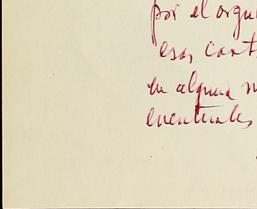 por el orgu
esas cont
en alguna m
eventuales